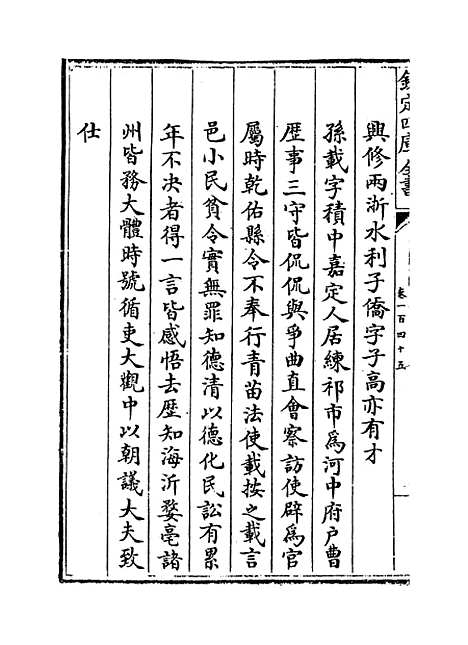 欽定四庫全書
卷一百四十五
興修兩浙水利子僑字子高亦有才
孫載字積中嘉定人居練祁市為河中府戶曹
歷事三守皆侃侃與爭曲直會察訪使辟為官
屬時乾佑縣令不奉行青苗法使載按之載言
邑小民貧令實無罪知德清以德化民訟有累
年不决者得一言皆感悟去歷知海沂婺亳諸
州皆務大體時號循吏大觀中以朝議大夫致
仕